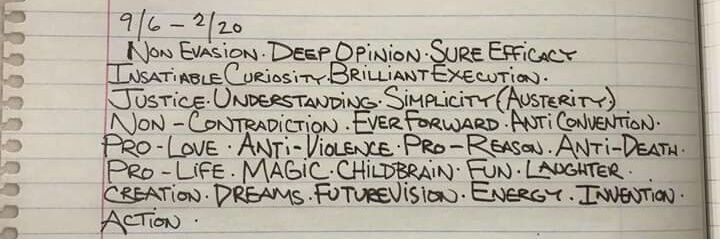 9/6 - 2/20
NON EVASION · DEEP OPINION · SURE EFFICACY
INSATIABLE CURIOSITY · BRILLIANT EXECUTION ·
JUSTICE · UNDERSTANDING · SIMPLICITY (AUSTERITY)
NON - CONTRADICTION · EVER FORWARD · ANTI CONVENTION ·
PRO - LOVE · ANTI - VIOLENCE · PRO - REASON · ANTI - DEATH ·
PRO - LIFE · MAGIC · CHILDBRAIN · FUN · LAUGHTER ·
CREATION · DREAMS · FUTUREVISION · ENERGY · INVENTION ·
ACTION ·